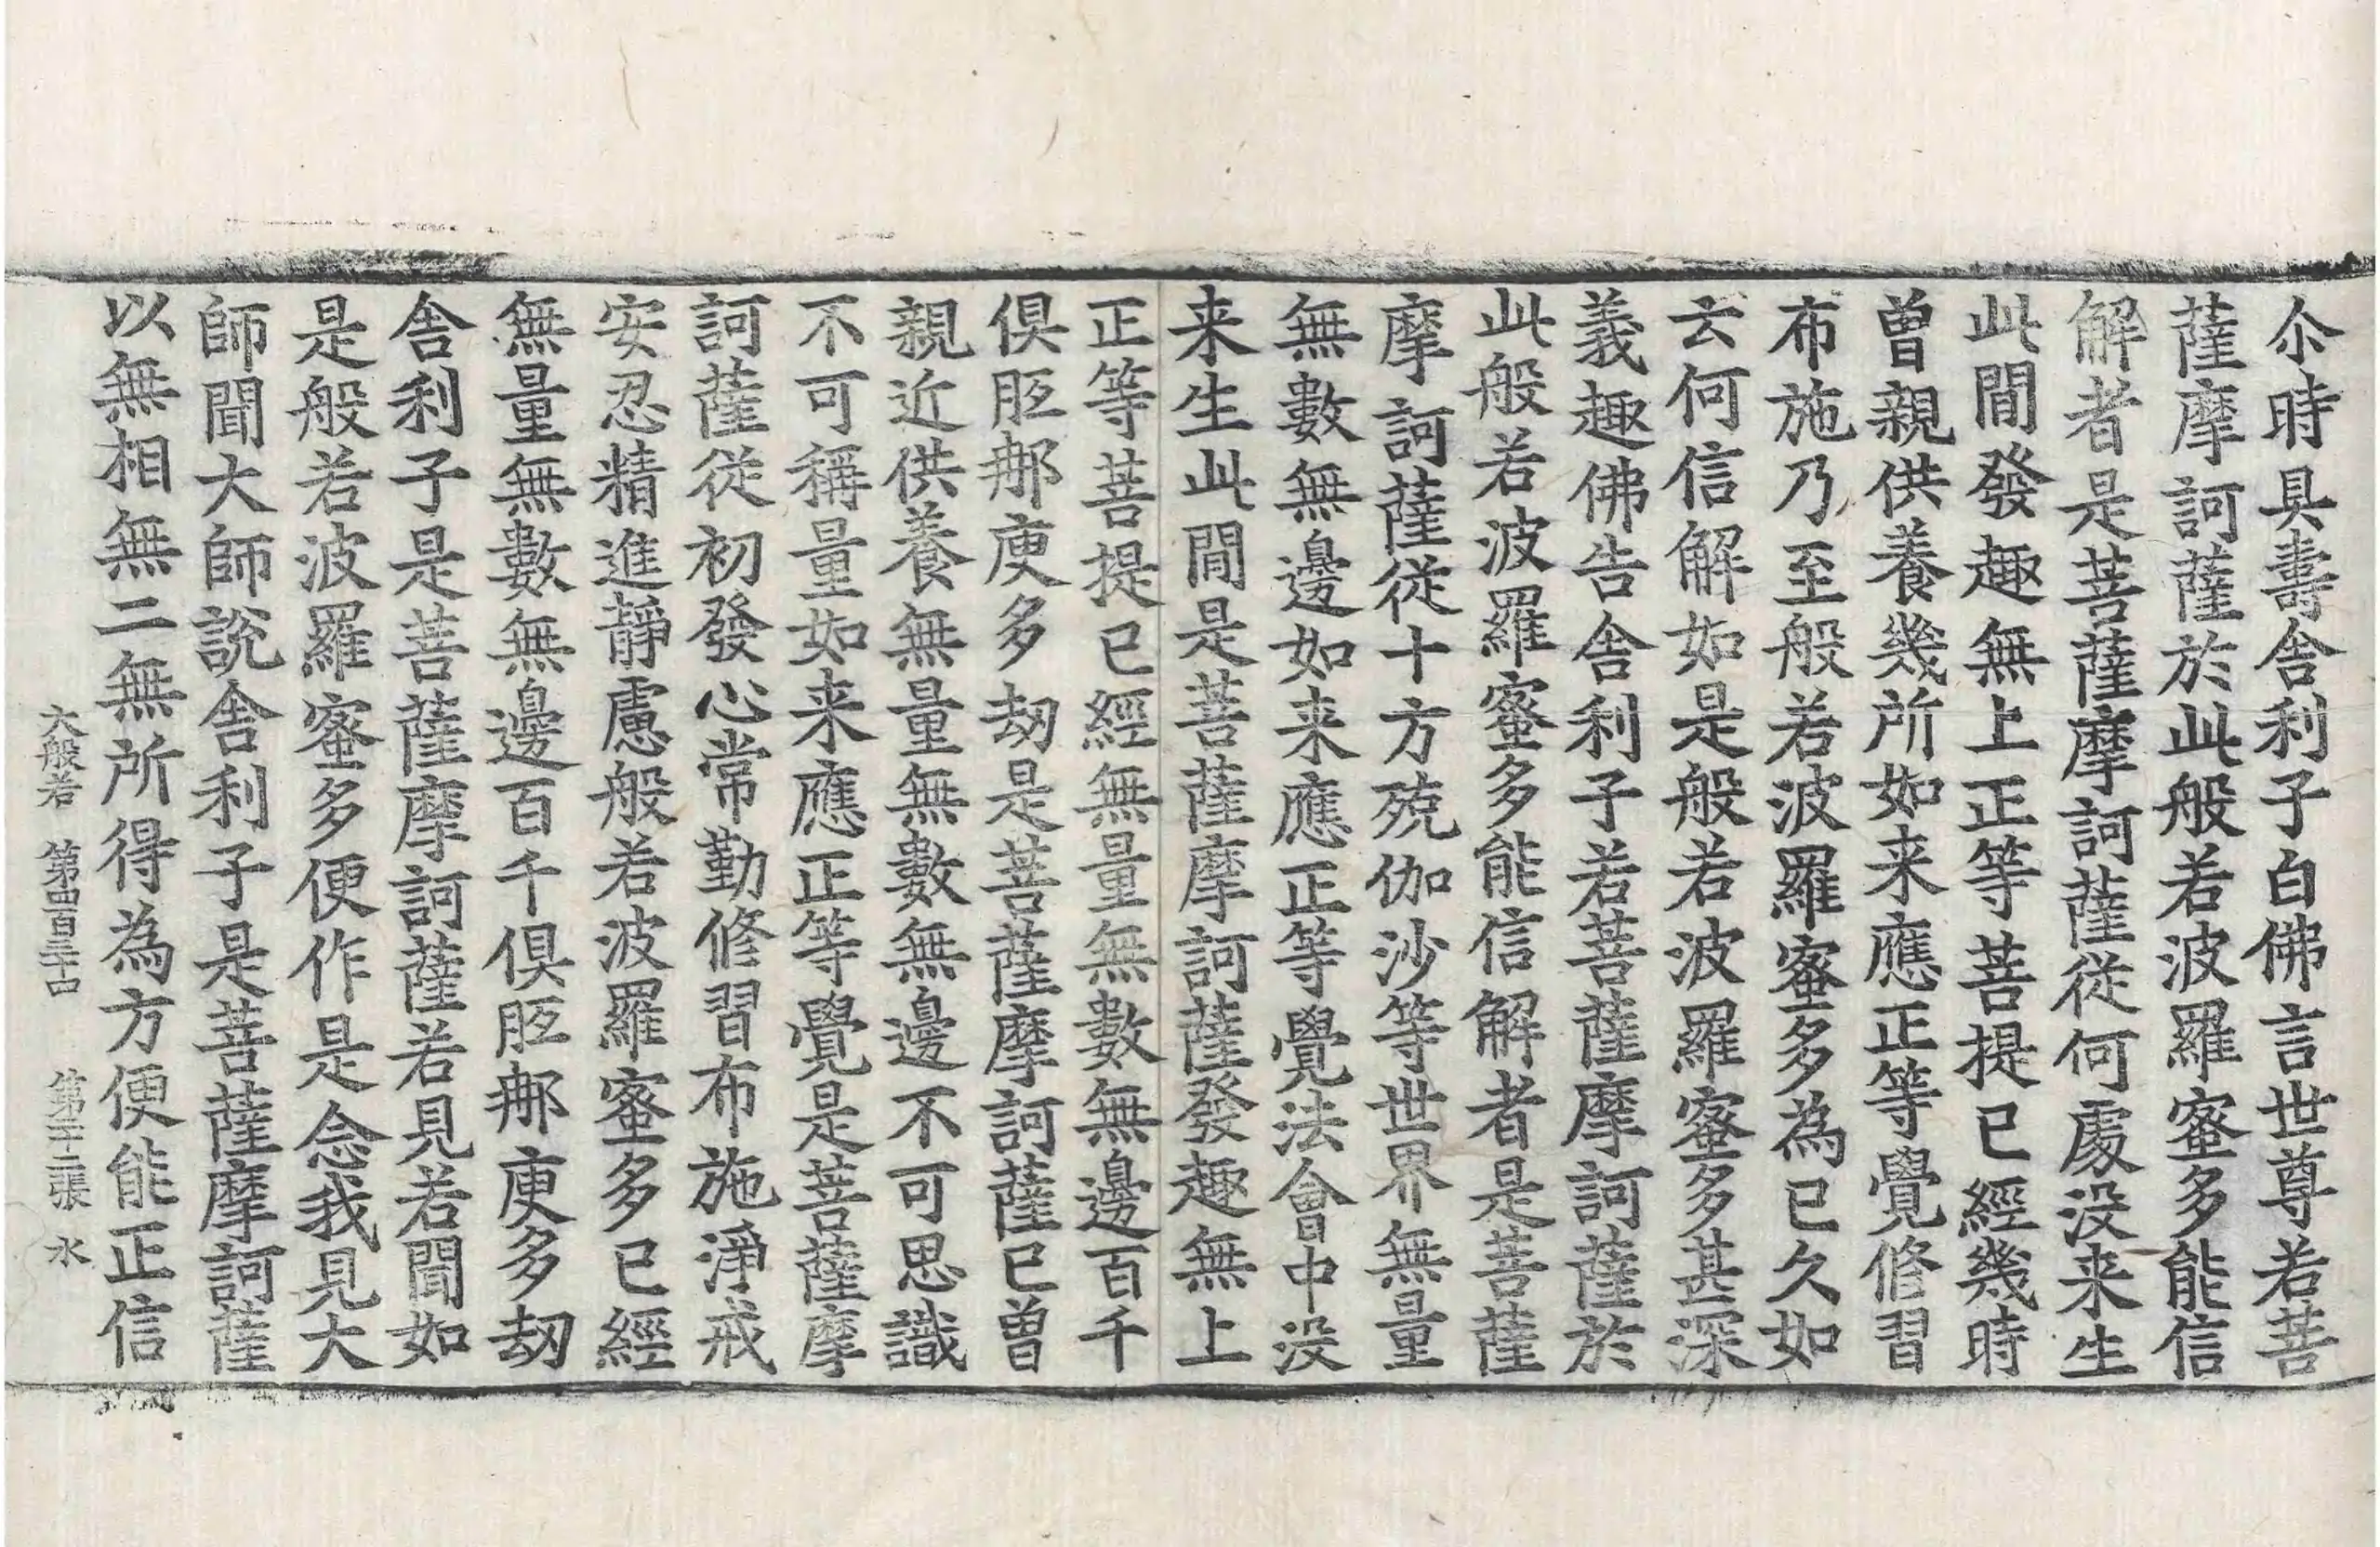 尒時具壽舍利子白佛言世尊若菩
薩摩訶薩於此般若波羅蜜多能信
解者是菩薩摩訶薩従何處没来生
此間發趣無上正等菩提已經幾時
曾親供養幾所如来應正等覺修習
布施乃至般若波羅蜜多為已久如
云何信解如是般若波羅蜜多甚深
義趣佛告舍利子若菩薩摩訶薩於
此般若波羅蜜多能信解者是菩薩
摩訶薩従十方殑伽沙等世界無量
無數無邊如来應正等覺法會中没
来生此間是菩薩摩訶薩發趣無上
正等菩提已經無量無數無邊百千
俱胝那庾多劫是菩薩摩訶薩已曾
親近供養無量無數無邊不可思議
不可稱量如来應正等覺是菩薩摩
訶薩従初發心常勤修習布施淨戒
安忍精進靜慮般若波羅蜜多已經
無量無數無邊百千俱胝那庾多劫
舍利子是菩薩摩訶薩若見若聞如
是般若波羅蜜多便作是念我見大
師聞大師說舍利子是菩薩摩訶薩
以無相無二無所得為方便能正信
大般若 第四百三十四 第二十二張 水